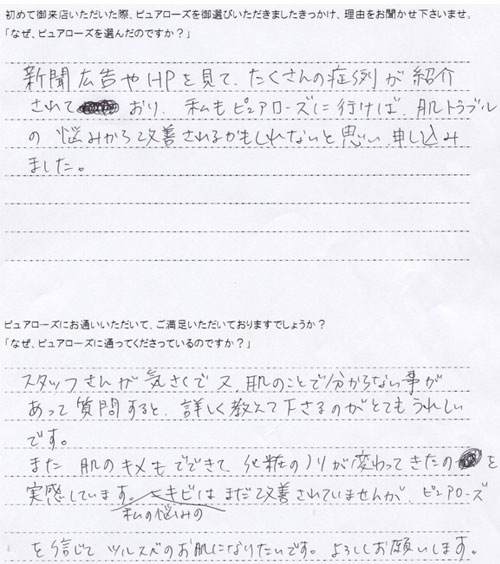 初めて御来店いただいた際、ピュアローズを御選びいただきましたきっかけ、理由をお聞かせ下さいませ。
「なぜ、ピュアローズを選んだのですか？」
新聞広告やHPを見て、たくさんの症例が紹介
されて おり、私もピュアローズに行けば、肌トラブル
の悩みから改善されるかもしれないと思い、申し込み
ました。
ピュアローズにお通いいただいて、ご満足いただいておりますでしょうか？
「なぜ、ピュアローズに通ってくださっているのですか？」
スタッフさんが気さくで又、肌のことで分からない事が
あって質問すると、詳しく教えて下さるのがとてもうれしい
です。
また 肌のキメもでてきて、化粧のノリが変わってきたの を
実感しています。ニキビは まだ改善されていませんが、ピュアローズ
私の悩みの
を信じて ツルスベのお肌になりたいです。よろしくお願いします。